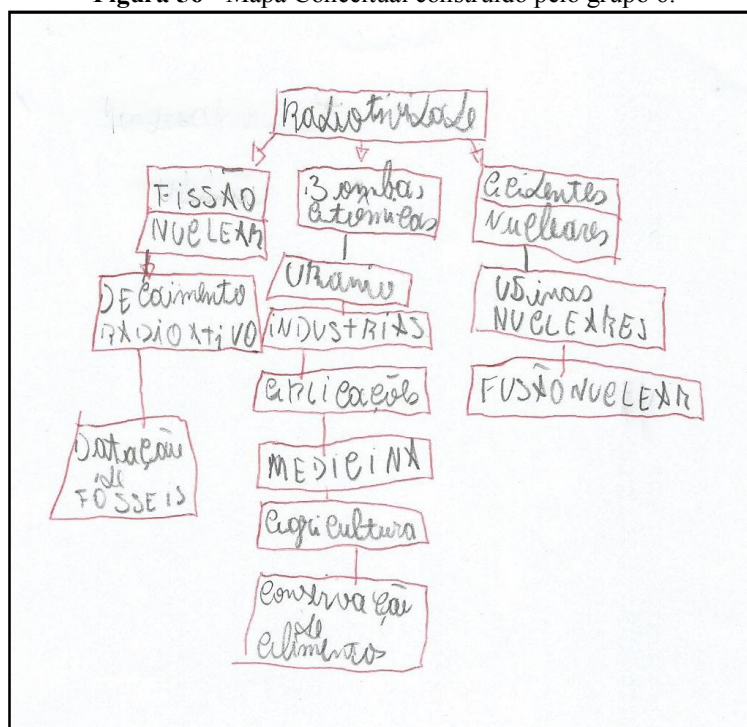 Figura 30 - Mapa Conceitual construído pelo grupo 6.
Radiotividade
FISSÃO
NUCLEAR
Bombas
Atomicas
Acidentes
Nucleares
DEcaimento
RADIOATiVO
URanio
iNDUStRiAS
USinas
NUCLEARES
APLicações
FUSÃO NUCLEAR
Datação
de
FÓSSEIS
MEDICINA
Agricultura
Conservação
de
Alimentos